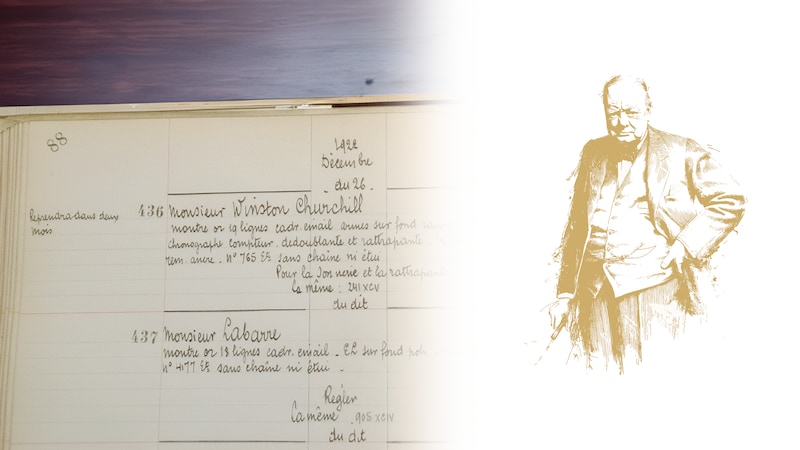 88
1922
Décembre
du 26
436 Monsieur Winston Churchill
Reprendra dans deux
mois
montre or 19 lignes cadr. email armes sur fond
chronographe compteur dedoublante et rattrapante
rem. ancre. N° 765 Es sans chaîne ni étui
Pour la Sonnerie et la rattrapan
la même : 241 XCV
du dit
437 Monsieur Labarre
montre or 18 lignes cadr. email _ EL sur fond poli
N° 4177 Es sans chaîne ni étui _
Regler
la même . 905 XCIV
du dit